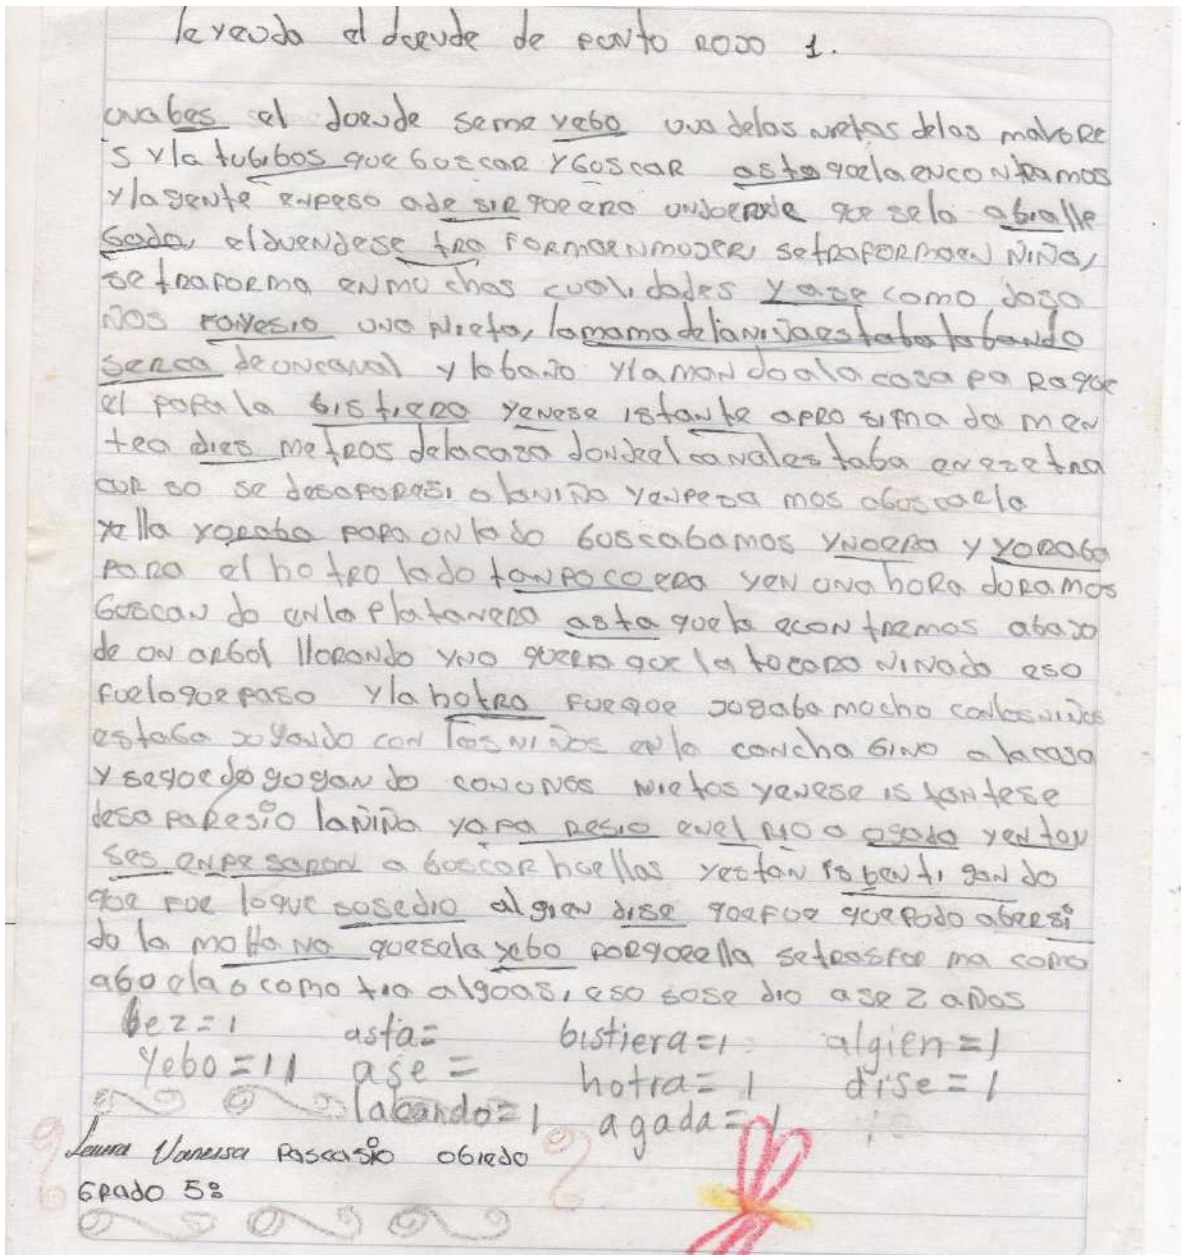 leyenda el duende de punto rojo 1.
unabes el duende seme yebo una delas nietas delas mallore
s y la tubibos que buscar y buscar asta quela encontramos
y lagente enpeso ade sir que era unduende que sela abialle
bada, elduendese tra formaenmujer, setraformaen niño,
se traforma enmuchas cualidades y ase como dosa
ños uno nieta, lamamadelaniñaestaba labando
serca de uncanal y labaño ylamandoala casa pa raque
el papala bistiera yenese istante apro sima da men
tea dies metros delacaza dondeelcanales taba enezetra
cur so se desaparesi o laniña yenpeza mos abuscarla
yella yoraba para un lado buscabamos ynoera y yoraba
para el hotro lado tanpocoera yen una hora duramos
buscan do enla platanera asta quela econtremos abajo
de un arbol llorando yno queria que la tocara ninada eso
fueloquepaso y la hotra fueque jugaba mucho conlosniños
estaba jugando con los niños enla cancha bino a lacasa
y sequedo gugan do conunos nietos yenese istantese
desaparesio laniña yapa resio enel rio a agada yenton
ses enpesaron a buscar huellas yestan isbenti gando
que fue loque sosedio algien dise quefue quepudo abersi
do la mohana quesela yebo porqueella setrasfor ma como
abuela o como tia algoasi, eso sose dio ase 2 años
bez=1 asta= bistiera=1 algien=1
yebo=11 ase= hotra=1 dise=1
labando=1 agada=1
Laura Vanessa Pascasio obiedo
Grado 5º